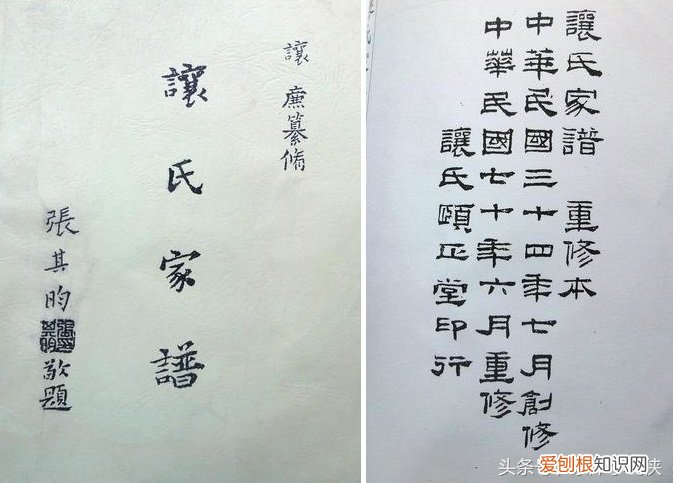 讓廉纂脩
讓氏家譜
張其昀敬題
讓氏家譜 重修本
中華民國三十四年七月創修
中華民國七十年六月重修
讓氏頤正堂印行
头条
侠
爱刨根知识网